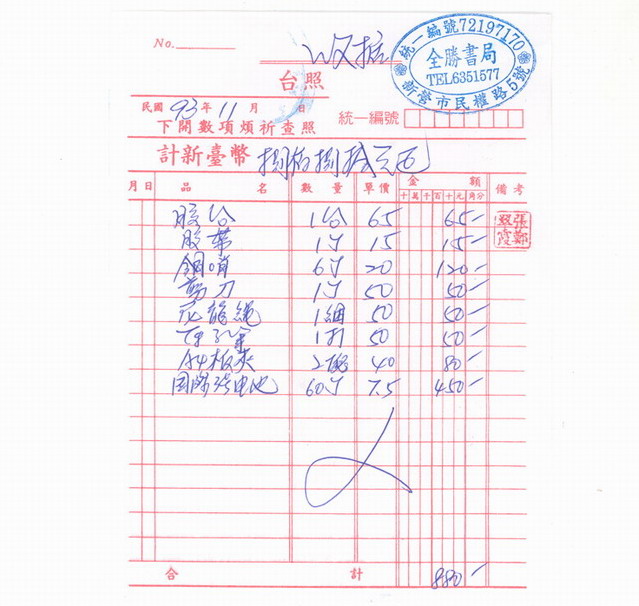 No.
台照
統一編號72197170
全勝書局
TEL6351577
新營市民權路5號
民國 93 年 11 月 日
下開數項煩祈查照
統一編號
計新臺幣 捌佰捌拾元正
月 日 品名 數量 單價 金額 備考
十 萬 千 百 十 元 角 分
膠台 1台 65 65
膠帶 1寸 15 15
鋼哨 6寸 20 120
剪刀 1寸 50 50
尼龍繩 1綑 50 50
1打 50 50
A4板夾 2 40 80
國際牌電池 60寸 7.5 450
合計 880